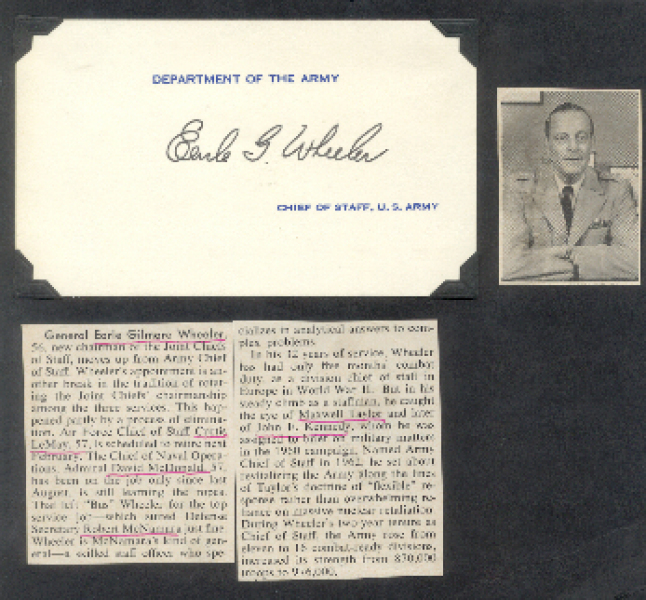 DEPARTMENT OF THE ARMY
Earle G. Wheeler
CHIEF OF STAFF, U. S. ARMY
General Earle Gilmore Wheeler,
56, new chairman of the Joint Chiefs
of Staff, moves up from Army Chief
of Staff. Wheeler's appointment is an-
other break in the tradition of rotat-
ing the Joint Chiefs' chairmanship
among the three services. This hap-
pened partly by a process of elimina-
tion. Air Force Chief of Staff Curtis
LeMay, 57, is scheduled to retire next
February. The Chief of Naval Opera-
tions, Admiral David McDonald, 57,
has been on the job only since last
August, is still learning the ropes.
That left "Bus" Wheeler for the top
service job—which suited Defense
Secretary Robert McNamara just fine.
Wheeler is McNamara's kind of gen-
eral—a skilled staff officer who spe-
cializes in analytical answers to com-
plex problems.
In his 32 years of service, Wheeler
has had only five months' combat
duty, as a division chief of staff in
Europe in World War II. But in his
steady climb as a staffman, he caught
the eye of Maxwell Taylor and later
of John F. Kennedy, whom he was
assigned to brief on military matters
in the 1960 campaign. Named Army
Chief of Staff in 1962, he set about
revitalizing the Army along the lines
of Taylor's doctrine of "flexible" re-
sponse rather than overwhelming re-
liance on massive nuclear retaliation.
During Wheeler's two-year tenure as
Chief of Staff, the Army rose from
eleven to 16 combat-ready divisions,
increased its strength from 870,000
troops to 976,000.